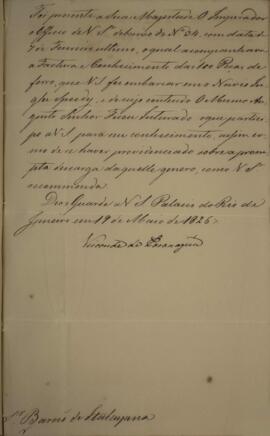 Foi presente a Sua Magestade O Imperador
o Officio de V. S. debaixo do Nº 34, com data de
7 de Fevereiro ultimo, o qual acompanhava
a Factura e Conhecimento das 100 Pesas de
ferro, que V. S. fez embarcar em o Navio In-
glez Speedy, e de cujo contheudo O Mesmo Au-
gusto Senhor Ficou Inteirado o que partici-
po a V. S. para seu conhecimento, assim co-
mo de se haver providenciado sobre a prom-
pta descarga daquelle genero, como V. S.
recommenda.
Deos Guarde a V. S. Palacio do Rio de
Janeiro em 19 de Maio de 1826.
Visconde de Paranaguá
Sr. Barão de Itabayana